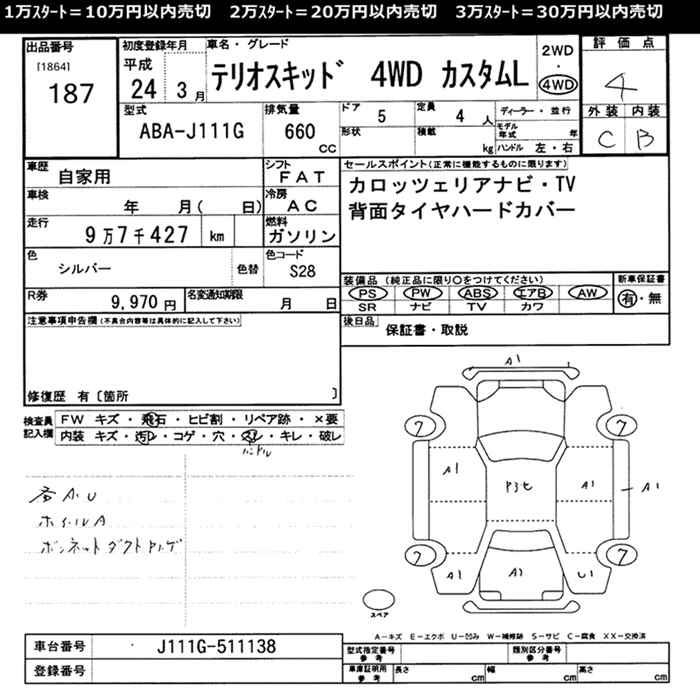 1万ｽﾀｰﾄ＝10万円以内売切　2万ｽﾀｰﾄ＝20万円以内売切　3万ｽﾀｰﾄ＝30万円以内売切
出品番号
[1864]
187
初度登録年月
平成
24 3月
車名・グレード
テリオスキッド 4WD カスタムL
2WD
・
4WD
評価点
4
外装 内装
C B
型式
ABA-J111G
排気量
660
cc
ドア 5
定員 4 人
形状
積載 kg
ディーラー・並行
モデル年式 年
ハンドル 左・右
車歴
自家用
シフト
FAT
車検
年 月( 日)
冷房
AC
走行
9万7千427 km
燃料
ガソリン
色
シルバー
色替
色コード
S28
R券
9,970 円
名変通知期限
月 日
セールスポイント(正常に機能するものに限ります)
カロッツェリアナビ・TV
背面タイヤハードカバー
装備品 (純正品に限り○をつけてください)
新車保証書
PS PW ABS エアB AW
SR ナビ TV カワ
有・無
後日品
保証書・取説
注意事項申告欄(不具合内容等は具体的に記入して下さい)
修復歴 有〔箇所 〕
検査員
記入欄
FW キズ・飛石・ヒビ割・リペア跡・×要
内装 キズ・汚レ・コゲ・穴・スレ・キレ・破レ
ハンドル
A・U
ホイルA
ボンネットダクト
A1
7 7
A1 A1 A1
7 7
A1 A1 U1
スペア
A－キズ E－エクボ U－凹み W－補修跡 S－サビ C－腐食 XX－交換済
車台番号
J111G-511138
登録番号
型式指定番号
参考
類別区分番号
参考
車庫証明用
参考
長さ cm
幅 cm
高さ cm